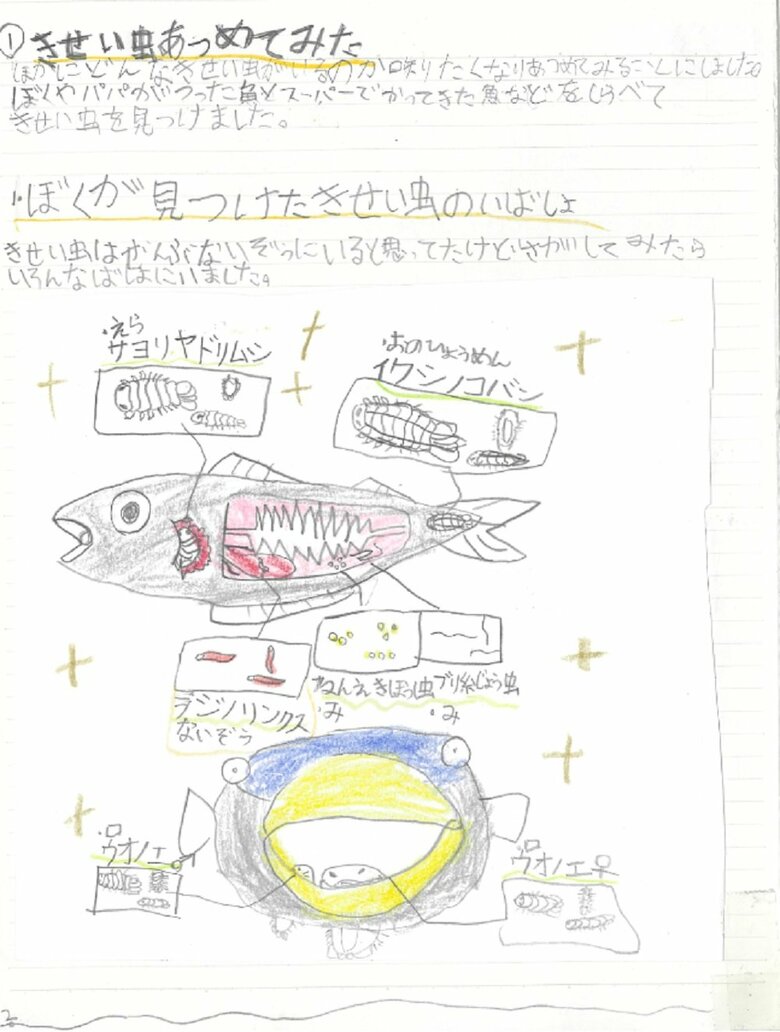 ① きせい虫あつめてみた
ほかにどんなきせい虫がいるのか知りたくなりあつめてみることにしました。
ぼくやパパがつった魚とスーパーでかってきた魚などをしらべて
きせい虫を見つけました。
1.ぼくが見つけたきせい虫のいばしょ
きせい虫はかんぶないぞうにいると思ってたけどさがしてみたら
いろんなばしょにいました。
・えら
サヨリヤドリムシ
・おのひょうめん
イクシノコバン
ラジノリンクス
ないぞう
ねんえきほう虫
・み
ブリ糸じょう虫
・み
・口
ウオノエ♂
・口
ウオノエ♀
2